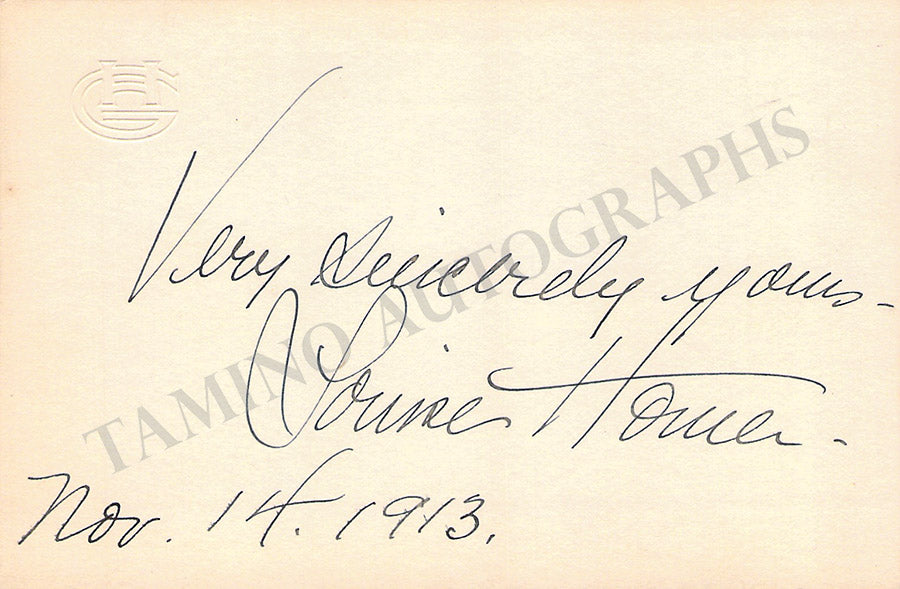 Very sincerely yours-
Louise Homer-
Nov. 14. 1913.
TAMINO AUTOGRAPHS